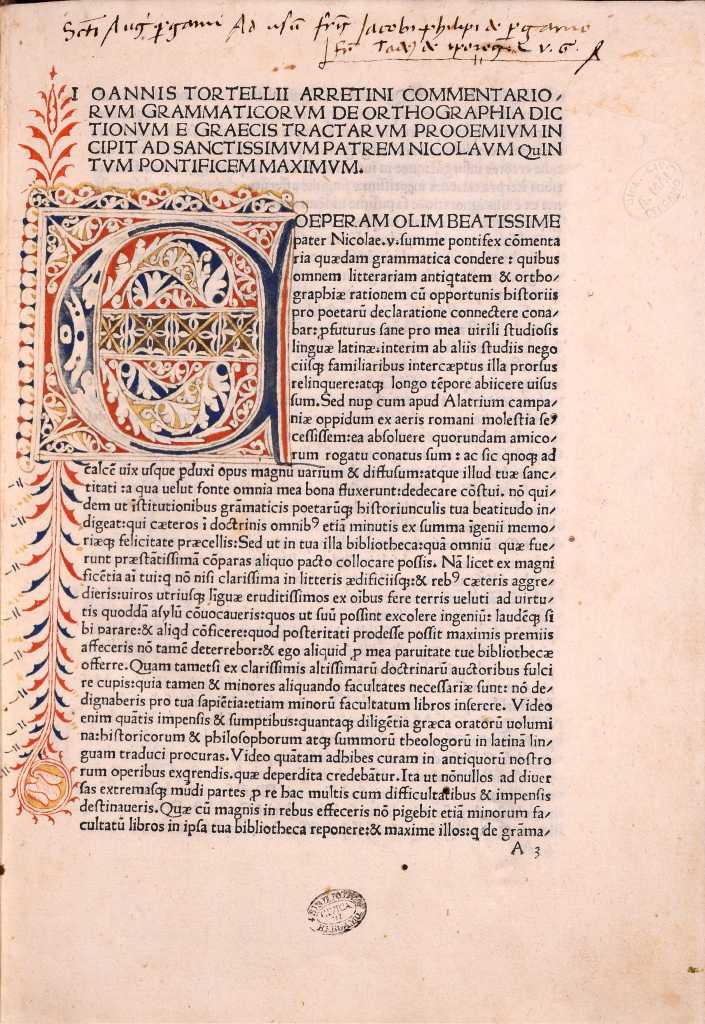 Ad usum Jacobi philipi de
IOANNIS TORTELLII ARRETINI COMMENTARIO,
RVM GRAMMATICORVM DE ORTHOGRAPHIA DIC
TIONVM E GRAECIS TRACTARVM PROOEMIVM IN
CIPIT AD SANCTISSIMVM PATREM NICOLAVM QuIN
TVM PONTIFICEM MAXIMVM.
COEPERAM OLIM BEATISSIME
pater Nicolae.v.summe pontifex cōmenta
ria quædam grammatica condere : quibus
omnem litterariam antiqtatem & ortho/
graphiæ rationem cū opportunis historiis
pro poetarū declaratione connectere cona/
bar: ꝓfuturus sane pro mea uirili studiosis
linguæ latinæ.interim ab aliis studiis nego
ciisqꝫ familiaribus interceptus illa prorsus
relinquere:atqꝫ longo tēpore abiicere uisus
sum.Sed nuꝑ cum apud Alatrium campa/
niæ oppidum ex aeris romani molestia se/
cessissem:ea absoluere quorundam amico/
rum rogatu conatus sum : ac sic qnoqꝫ ad
calcē uix usque ꝑduxi opus magnū uarium & diffusum:atque illud tuæ sanc/
titati :a qua uelut fonte omnia mea bona fluxerunt:dedecare cōstui. nō qui/
dem ut īstitutionibus grāmaticis poetarūqꝫ historiunculis tua beatitudo in
digeat:qui cæteros ī doctrinis omnibꝰ etiā minutis ex summa īgenii memo/
riæqꝫ felicitate præcellis:Sed ut in tua illa bibliotheca:quā omniū quæ fue/
runt præstātissimā cōparas aliquo pacto collocare possis. Nā licet ex magni
ficētia aī tui:q nō nisi clarissima in litteris ædificiisqꝫ:& rebꝰ cæteris aggre/
dieris:uiros utriusqꝫ līguæ eruditissimos ex oībus fere terris ueluti ad uirtu/
tis quoddā asylū cōuocaueris:quos ut suū possint excolere ingeniū: laudēqꝫ si
bi parare:& aliqd cōficere:quod posteritati prodesse possit maximis premiis
affeceris nō tamē deterrebor:& ego aliquid ꝓ mea paruitate tue bibliothecæ
offerre. Quam tametsi ex clarissimis altissimarū doctrinarū auctoribus fulci
re cupis:quia tamen & minores aliquando facultates necessariæ sunt: nō de/
dignaberis pro tua sapiētia:etiam minorū facultatum libros inserere. Video
enim quātis impensis & sumptibus:quantaqꝫ diligētia græca oratorū uolumi
na:historicorum & philosophorum atqꝫ summorū theologorū in latinā lin/
guam traduci procuras.Video quātam adhibes curam in antiquorū nostro
rum operibus exqrendis.quæ deperdita credebātur.Ita ut nōnullos ad diuer
sas extremasqꝫ mūdi partes ꝓ re hac multis cum difficultatibus & impensis
destinaueris. Quæ cū magnis in rebus effeceris nō pigebit etiā minorum fa/
cultatū libros in ipsa tua bibliotheca reponere:& maxime illos:q de grāma/
A 3